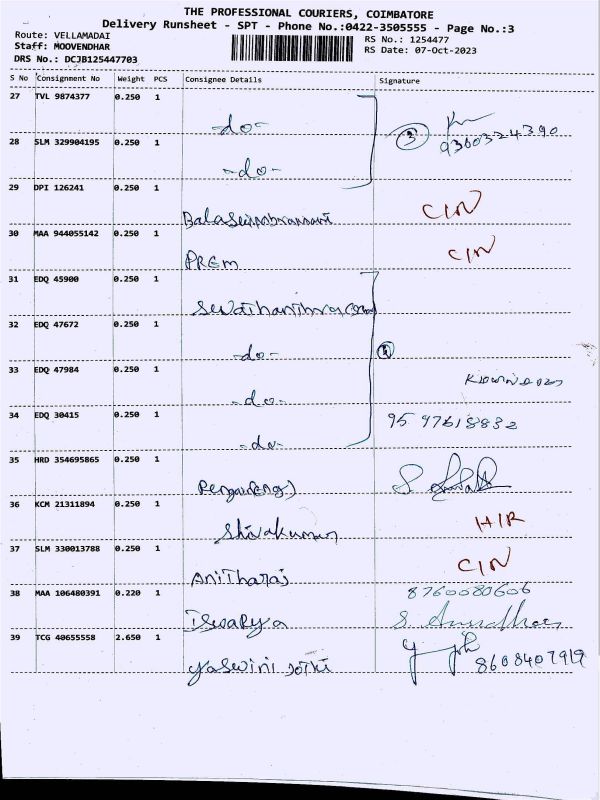 THE PROFESSIONAL COURIERS, COIMBATORE
Delivery Runsheet - SPT - Phone No.:0422-3505555 - Page No.:3
Route: VELLAMADAI
RS No.: 1254477
Staff: MOOVENDHAR
RS Date: 07-Oct-2023
DRS No.: DCJB125447703
S No Consignment No Weight PCS Consignee Details Signature
27 TVL 9874377 0.250 1
-do- 3 9360324390
28 SLM 329904195 0.250 1
-do-
29 DPI 126241 0.250 1
CIN
30 MAA 944055142 0.250 1
PREM CIN
31 EDQ 45900 0.250 1
32 EDQ 47672 0.250 1
-do-
33 EDQ 47984 0.250 1
-do-
34 EDQ 30415 0.250 1
-do- 95 97618832
35 HRD 354695865 0.250 1
36 KCM 21311894 0.250 1
Shivakumar H/R
37 SLM 330013788 0.250 1
AniTharaj CIN
38 MAA 106480391 0.220 1 8760080606
IswaRya S. Anuradha
39 TCG 40655558 2.650 1
Yaswini Jothi 8608407919